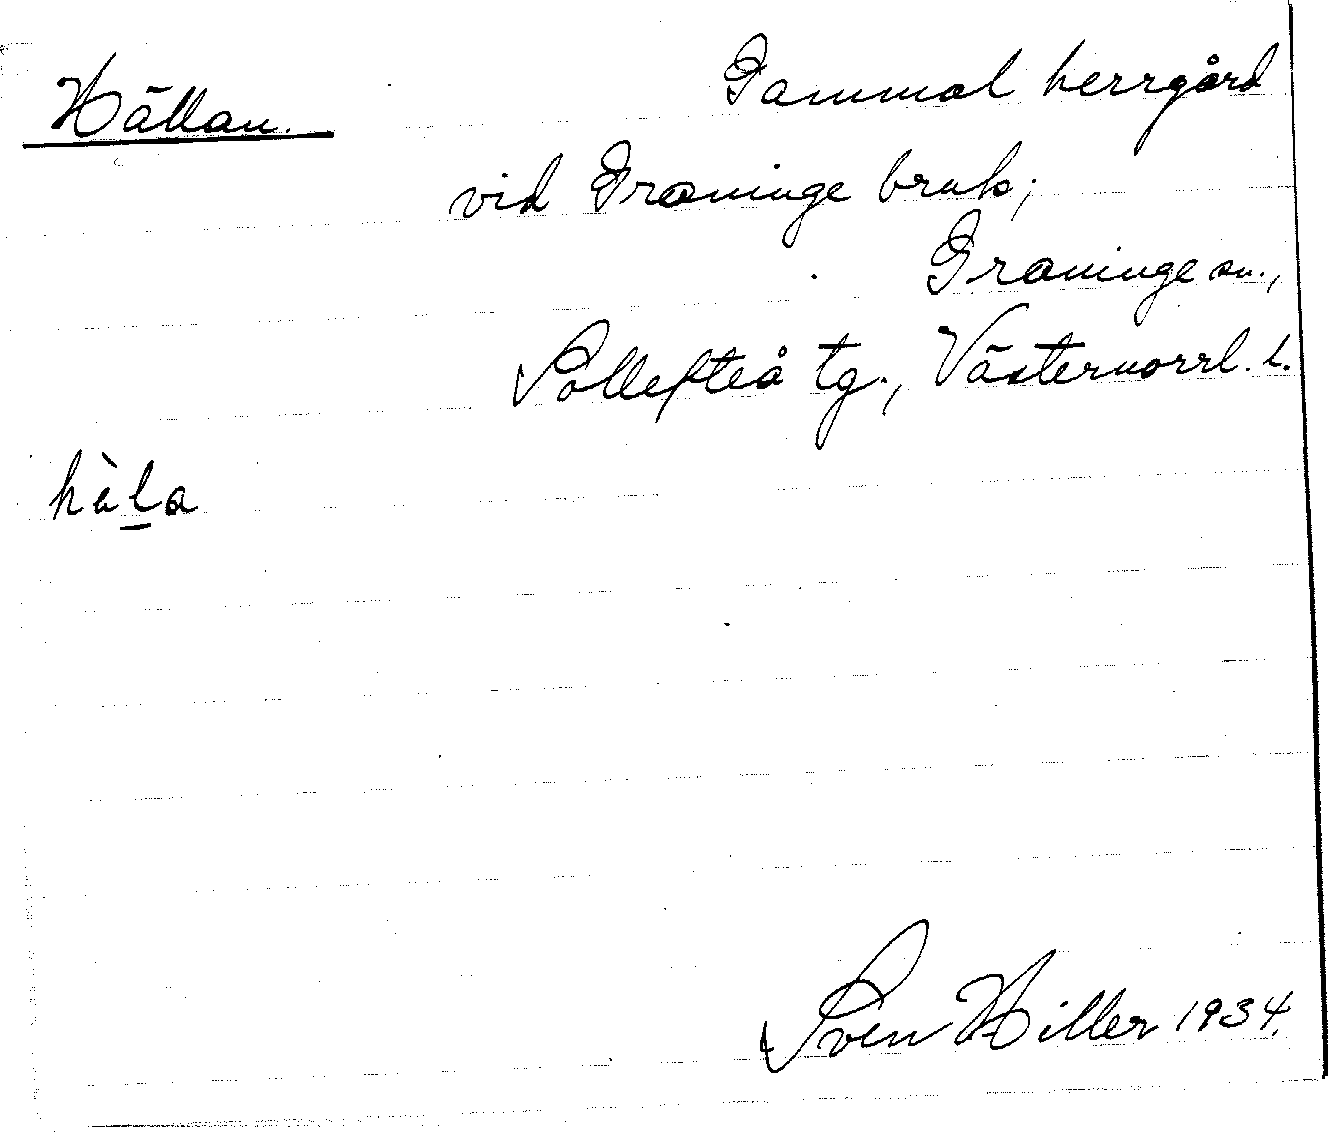 Hällan.
Gammal herrgård
vid Graninge bruk;
Graninge sn.,
Sollefteå tg., Västernorrl. l.
hàla
Sven Hiller 1934.